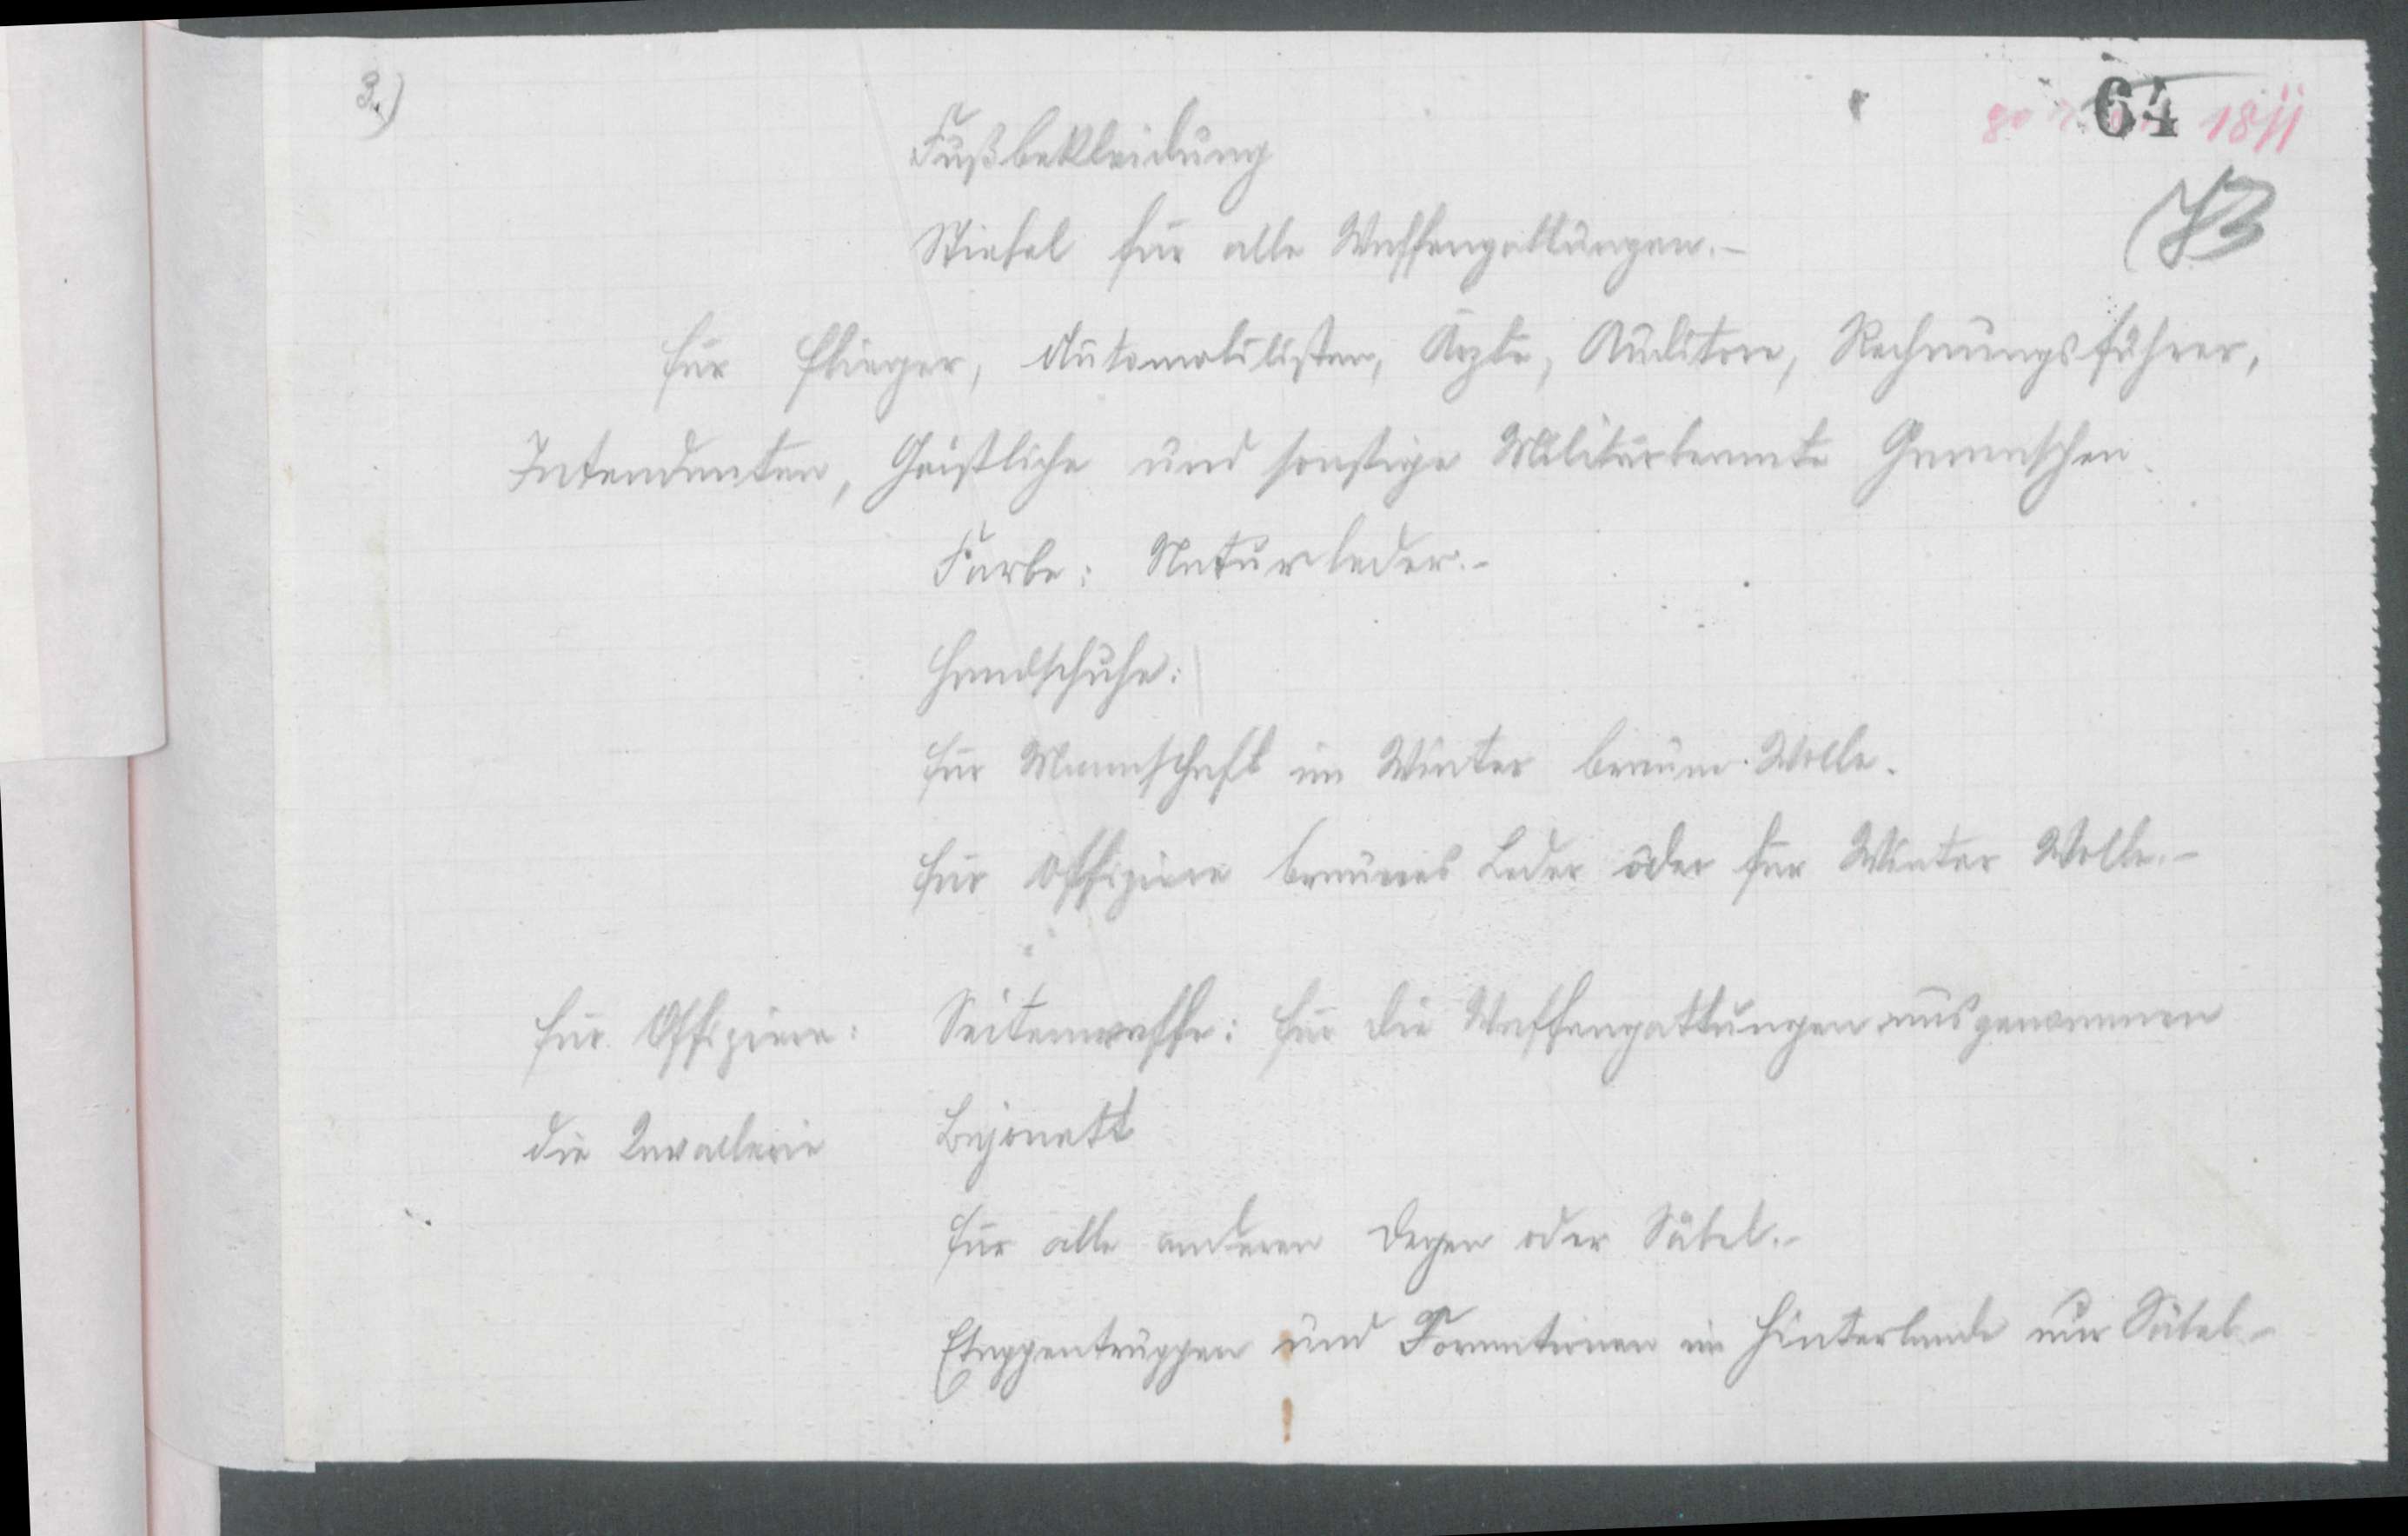 3.)
64
1811
73
Fußbekleidung
Stiefel für alle Waffengattungen.-
für Flieger, Automobilisten, Ärzte, Auditore, Rechnungsführer,
Intendanten, Geistliche und sonstige Militärbeamte Gamaschen.
Farbe: Naturleder.-
Handschuhe:
für Mannschaft im Winter braune Wolle.
für Offiziere braunes Leder oder für Winter Wolle.-
für Offiziere: Seitenwaffe: für die Waffengattungen ausgenommen
die Kavallerie Bajonett
für alle anderen Degen oder Säbel.-
Etappentruppen und Formationen im Hinterlande nur Säbel-